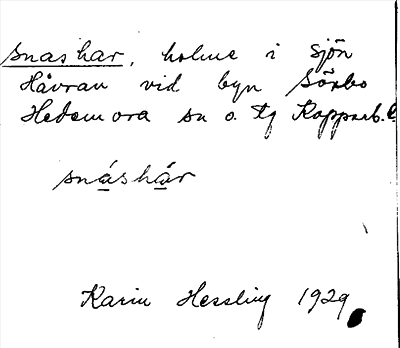 snashar, holme i sjön
Håvran vid byn Sörbo
Hedemora sn o. tg Kopparb. l.
snáshár
Karin Hessling 1929